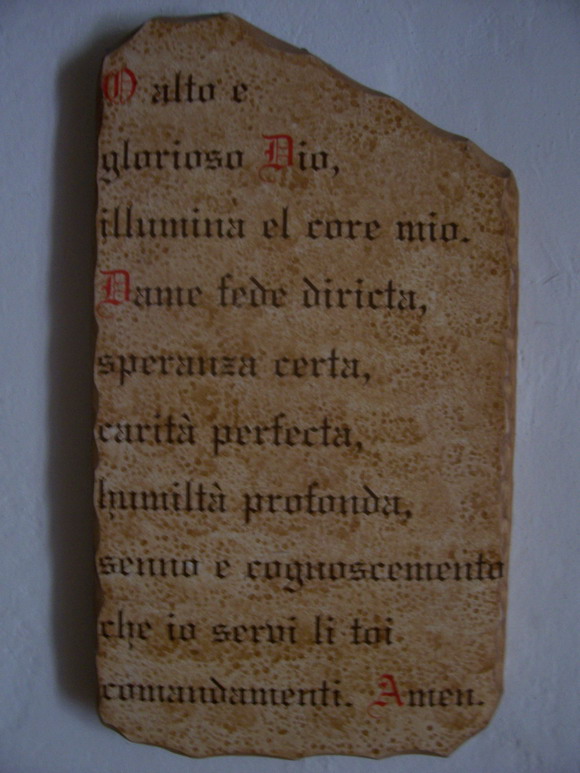 O alto e
glorioso Dio,
illumina el core mio.
Dame fede diricta,
speranza certa,
carità perfecta,
humiltà profonda,
senno e cognoscemento
che io servi li toi
comandamenti. Amen.